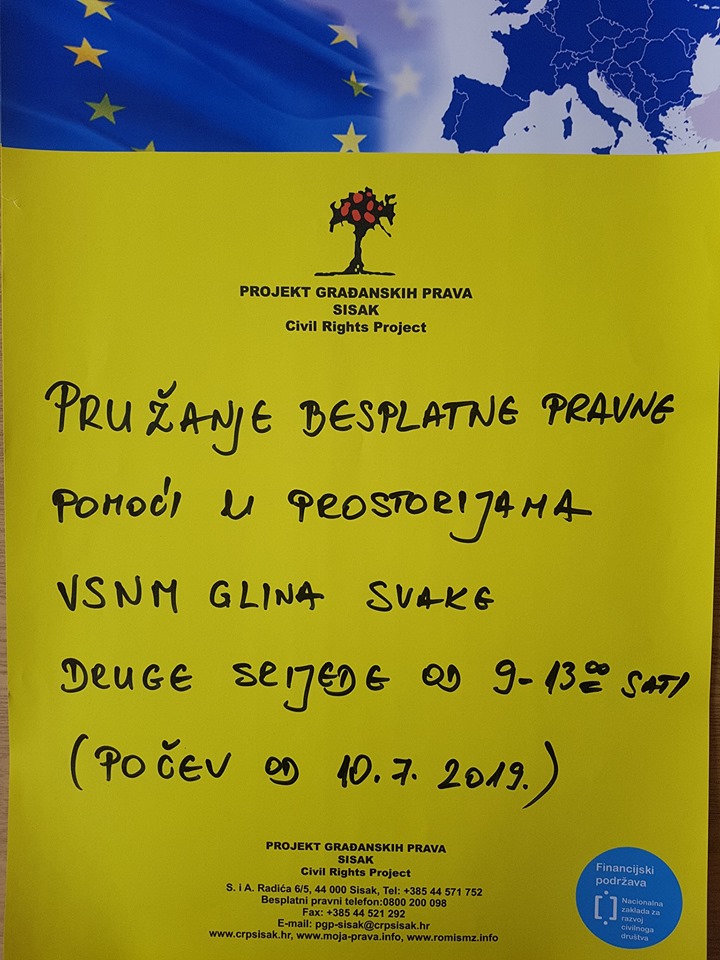 PROJEKT GRAĐANSKIH PRAVA
SISAK
Civil Rights Project
PRUŽANJE BESPLATNE PRAVNE
POMOĆI U PROSTORIJAMA
VSNM GLINA SVAKE
DRUGE SRIJEDE OD 9-13⁰⁰ SATI
(POČEV OD 10.7.2019.)
PROJEKT GRAĐANSKIH PRAVA
SISAK
Civil Rights Project
S. i A. Radića 6/5, 44 000 Sisak, Tel: +385 44 571 752
Besplatni pravni telefon:0800 200 098
Fax: +385 44 521 292
E-mail: pgp-sisak@crpsisak.hr
www.crpsisak.hr, www.moja-prava.info, www.romismz.info
Financijski
podržava
Nacionalna
zaklada za
razvoj
civilnoga
društva